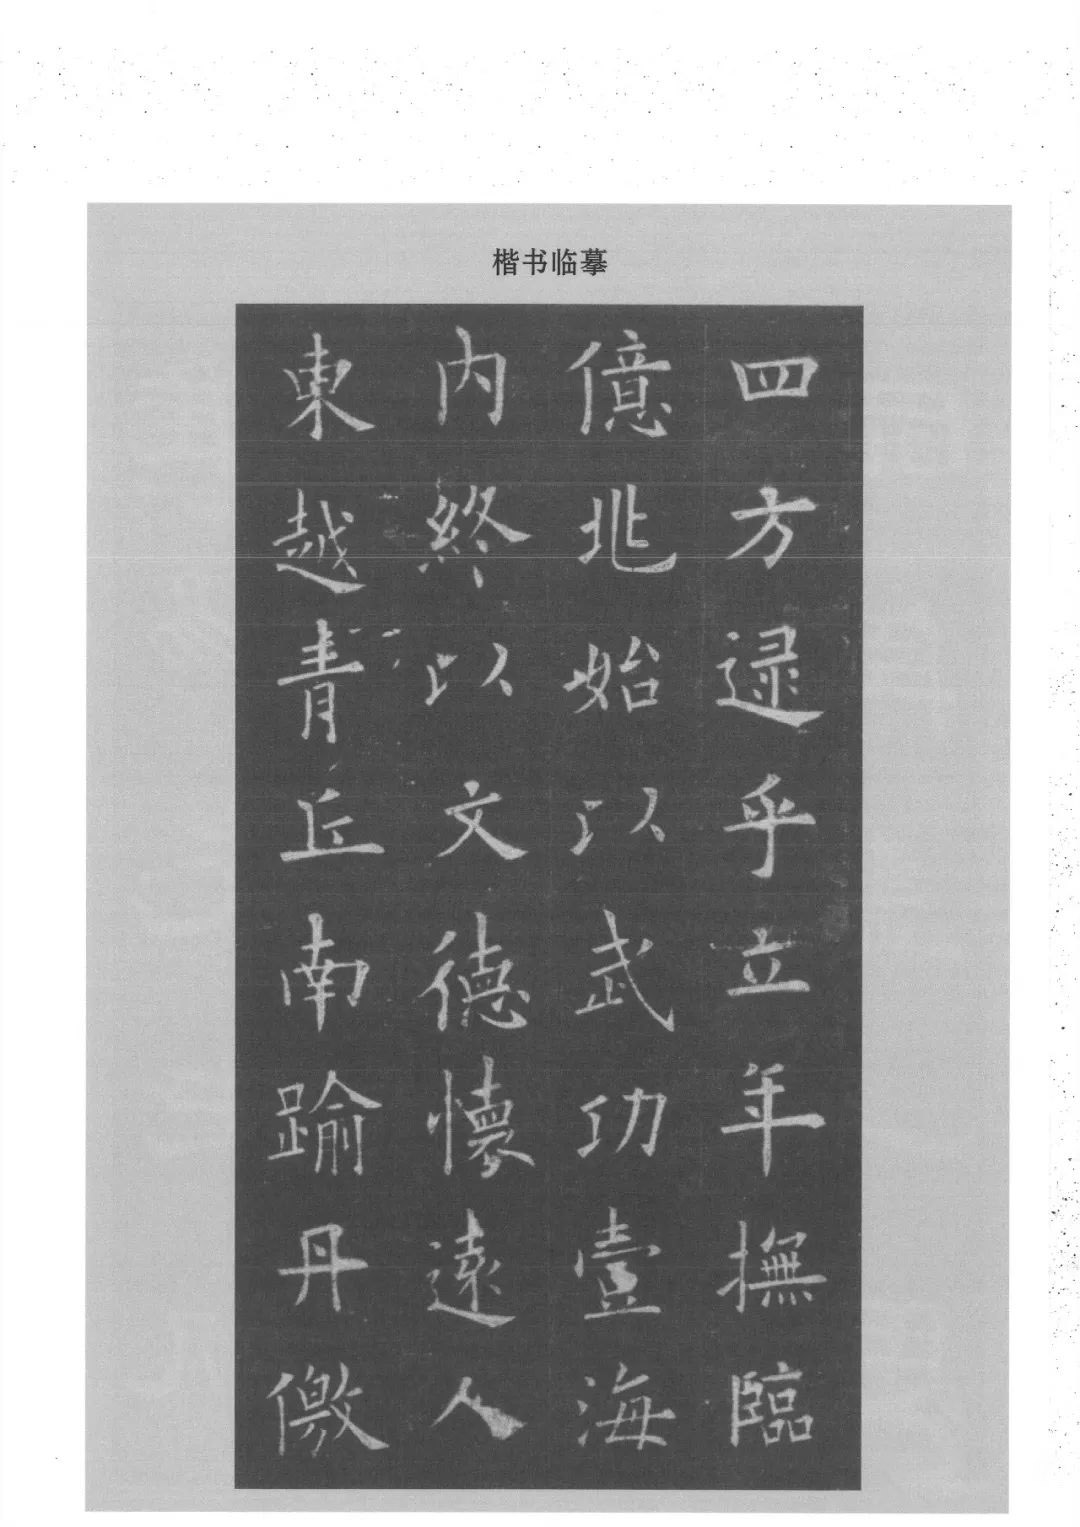 楷书临摹
四方逯乎立年撫臨
億兆始以武功壹海
内終以文德懷遠人
東越青丘南踰丹儌